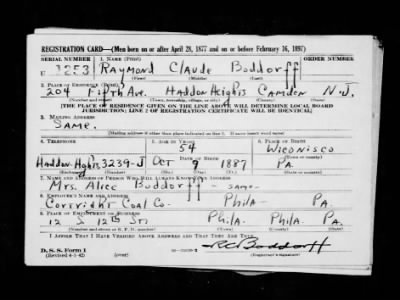 REGISTRATION CARD—(Men born on or after April 28, 1877 and on or before February 16, 1897)
SERIAL NUMBER 1. NAME (Print) ORDER NUMBER
U 3253 RAYMOND CLAUDE BODDORFF
2. PLACE OF RESIDENCE (Print)
204 Fifth Ave. HADDON Heights CAMDEN N.J.
(Number and street) (Town, township, village, or city) (County) (State)
[THE PLACE OF RESIDENCE GIVEN ON THE LINE ABOVE WILL DETERMINE LOCAL BOARD
JURISDICTION; LINE 2 OF REGISTRATION CERTIFICATE WILL BE IDENTICAL]
3. MAILING ADDRESS
SAME.
[Mailing address if other than place indicated on line 2. If same insert word same]
4. TELEPHONE 5. AGE IN YEARS 6. PLACE OF BIRTH
54 WICONISCO
DATE OF BIRTH
Haddon Hghts 3239-J OCT 9 1887 PA.
(Exchange) (Number) (Mo.) (Day) (Yr.) (State or country)
7. NAME AND ADDRESS OF PERSON WHO WILL ALWAYS KNOW YOUR ADDRESS
Mrs. Alice Boddorff - same-
8. EMPLOYER'S NAME AND ADDRESS
Cortright Coal Co. Phila. PA.
9. PLACE OF EMPLOYMENT OR BUSINESS
12 S 12th St. Phila. Phila. PA.
(Number and street or R. F. D. number) (Town) (County) (State)
I AFFIRM THAT I HAVE VERIFIED ABOVE ANSWERS AND THAT THEY ARE TRUE.
D. S. S. Form 1
(Revised 4-1-42) (over) RC Boddorff
(Registrant's signature)